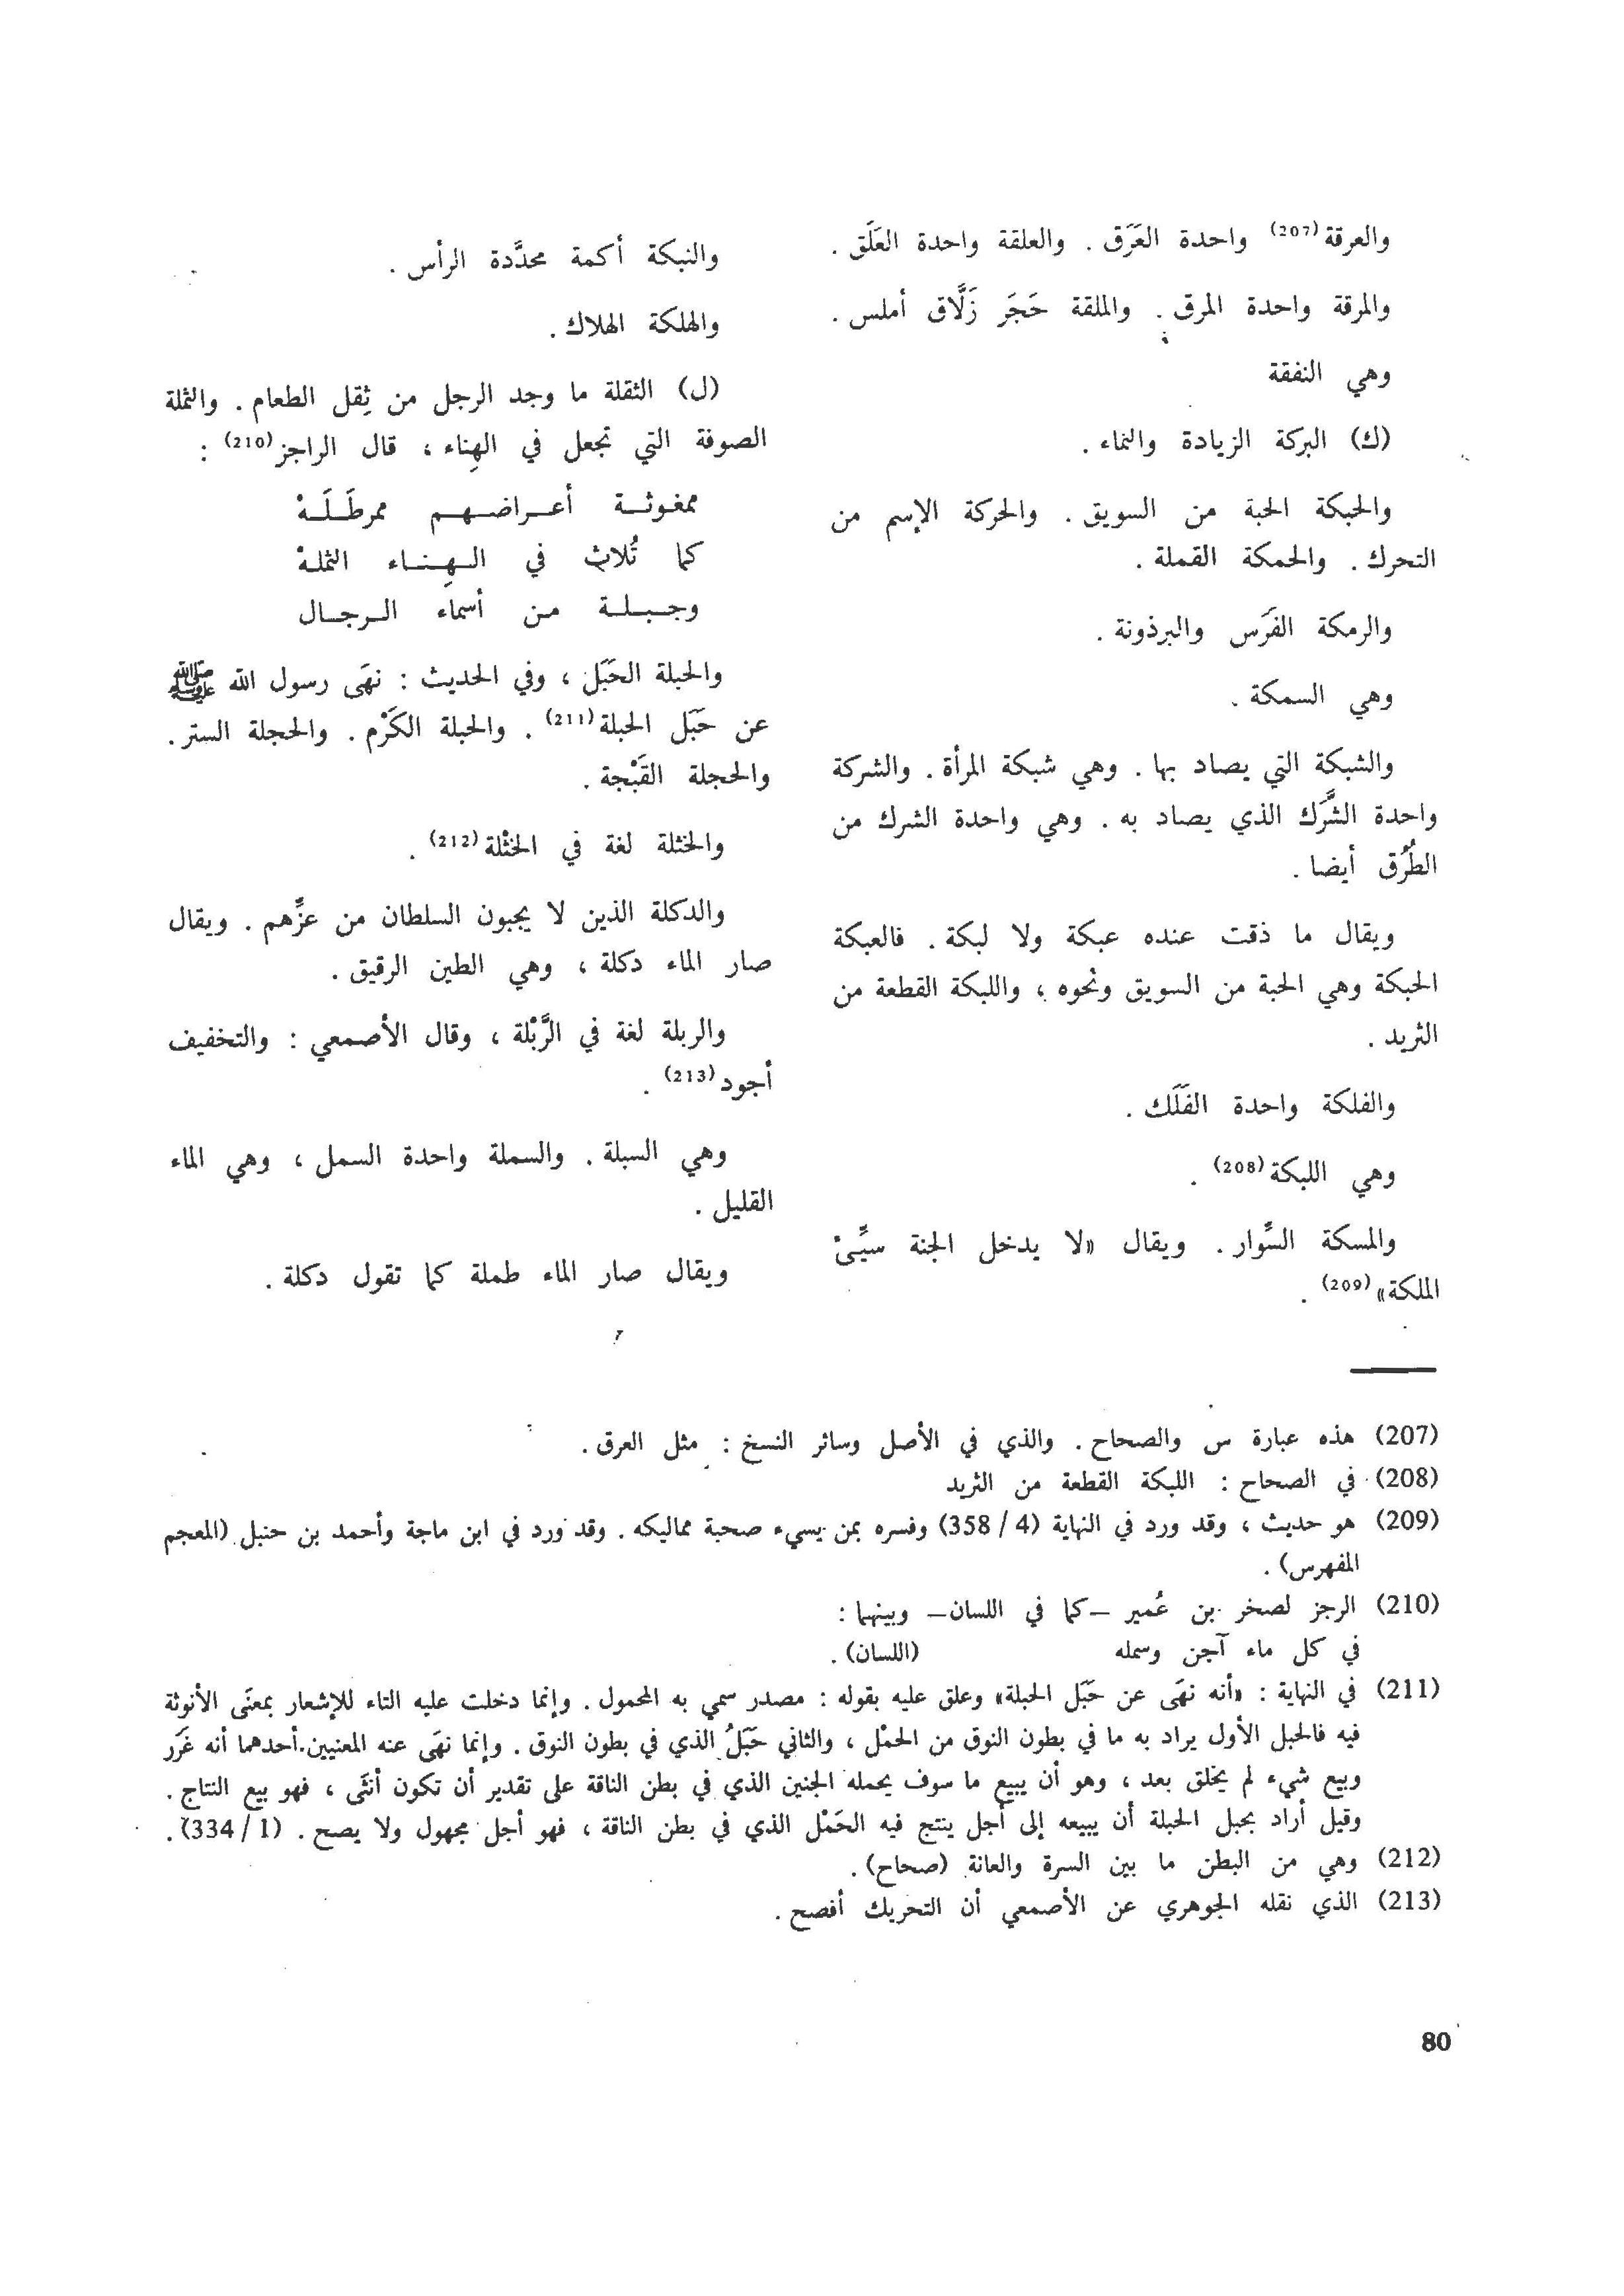 والعرقة (207) واحدة العَرَق . والعلقة واحدة العَلَق .
والمرقة واحدة المرق . والملقة حَجَر زَلَّاق أملس .
وهي النفقة
(ك) البركة الزيادة والنماء .
والحبكة الحبة من السويق . والحركة الإسم من
التحرك . والحمكة القملة .
والرمكة الفَرَس والبرذونة .
وهي السمكة .
والشبكة التي يصاد بها . وهي شبكة المرأة . والشركة
واحدة الشَّرَك الذي يصاد به . وهي واحدة الشرك من
الطُرُق أيضا .
ويقال ما ذقت عنده عبكة ولا لبكة . فالعبكة
الحبكة وهي الحبة من السويق ونحوه ، واللبكة القطعة من
الثريد .
والفلكة واحدة الفَلَك .
وهي اللبكة (208) .
والمسكة السِّوار . ويقال «لا يدخل الجنة سيِّئ
الملكة» (209) .
والنبكة أكمة محدَّدة الرأس .
والهلكة الهلاك .
(ل) الثقلة ما وجد الرجل من ثِقل الطعام . والثملة
الصوفة التي تجعل في الهِناء ، قال الراجز (210) :
ممغوثـة أعـراضـهـم ممرطَـلَـهْ
كما تُلاث في الـهِـنـاء الثملهْ
وجـبـلـة مـن أسماء الـرجـال
والحبلة الحَبَل ، وفي الحديث : نهَى رسول الله ﷺ
عن حَبَل الحبلة (211) . والحبلة الكَرْم . والحجلة الستر .
والحجلة القَبْجة .
والخثلة لغة في الخثْلة (212) .
والدكلة الذين لا يجبون السلطان من عزِّهم . ويقال
صار الماء دكلة ، وهي الطين الرقيق .
والربلة لغة في الرَّبْلة ، وقال الأصمعي : والتخفيف
أجود (213) .
وهي السبلة . والسملة واحدة السمل ، وهي الماء
القليل .
ويقال صار الماء طملة كما تقول دكلة .
(207) هذه عبارة س والصحاح . والذي في الأصل وسائر النسخ : مثل العرق .
(208) في الصحاح : اللبكة القطعة من الثريد
(209) هو حديث ، وقد ورد في النهاية (4 / 358) وفسره بمن يسيء صحبة مماليكه . وقد ورد في ابن ماجة وأحمد بن حنبل (المعجم
المفهرس) .
(210) الرجز لصخر بن عُمير –كما في اللسان– وبينهما :
في كل ماء آجن وسمله (اللسان) .
(211) في النهاية : «أنه نهَى عن حَبَل الحبلة» وعلق عليه بقوله : مصدر سمي به المحمول . وإنما دخلت عليه التاء للإشعار بمعنَى الأنوثة
فيه فالحبل الأول يراد به ما في بطون النوق من الحمْل ، والثاني حَبَلُ الذي في بطون النوق . وإنما نهَى عنه المعنيين.أحدهما أنه غَرَر
وبيع شيء لم يخلق بعد ، وهو أن يبيع ما سوف يحمله الجنين الذي في بطن الناقة على تقدير أن تكون أنثَى ، فهو بيع النتاج .
وقيل أراد بحبل الحبلة أن يبيعه إلى أجل ينتج فيه الحَمْل الذي في بطن الناقة ، فهو أجل مجهول ولا يصح . (1 / 334) .
(212) وهي من البطن ما بين السرة والعانة (صحاح) .
(213) الذي نقله الجوهري عن الأصمعي أن التحريك أفصح .
80